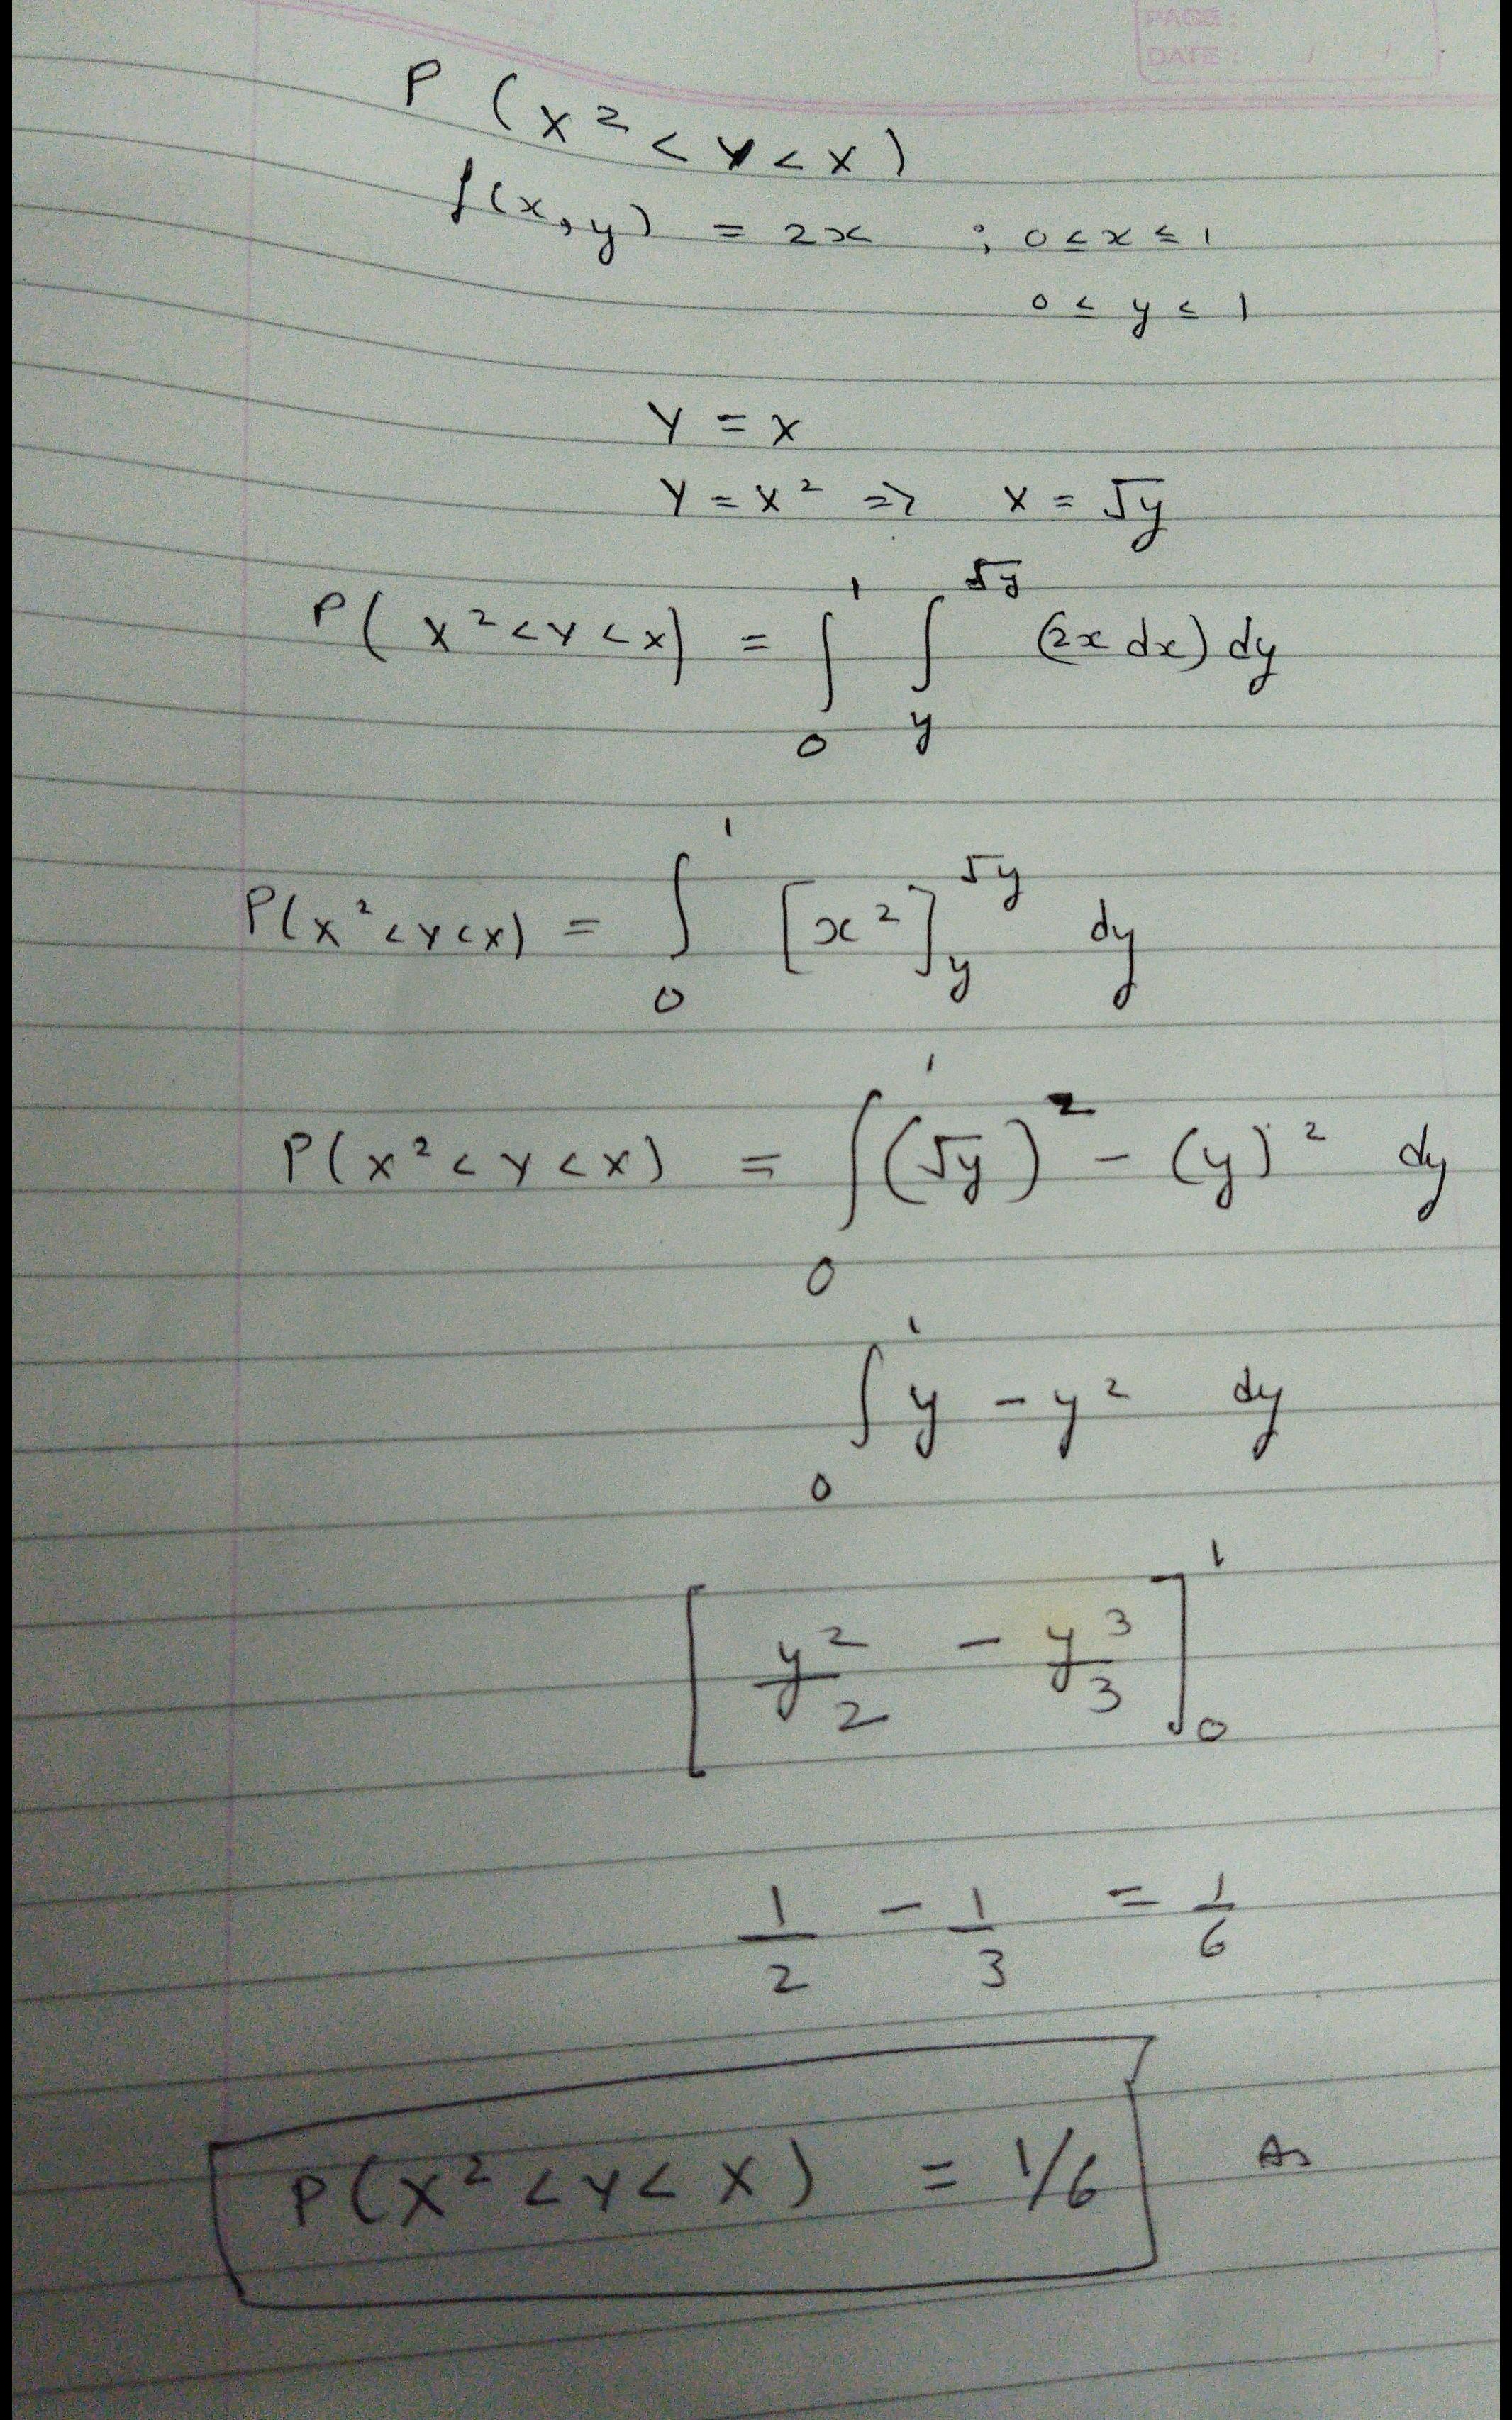 PAGE :
DATE : / /
P (X² < Y < X)
f(x,y) = 2x ; 0 ≤ x ≤ 1
0 ≤ y ≤ 1
Y = X
Y = X² => X = √y
P(X² < Y < X) = ∫₀¹ ∫_y^√y (2x dx) dy
P(X² < Y < X) = ∫₀¹ [x²]_y^√y dy
P(X² < Y < X) = ∫₀¹ (√y)² - (y)² dy
∫₀¹ y - y² dy
[y²/2 - y³/3]₀¹
1/2 - 1/3 = 1/6
P(X² < Y < X) = 1/6